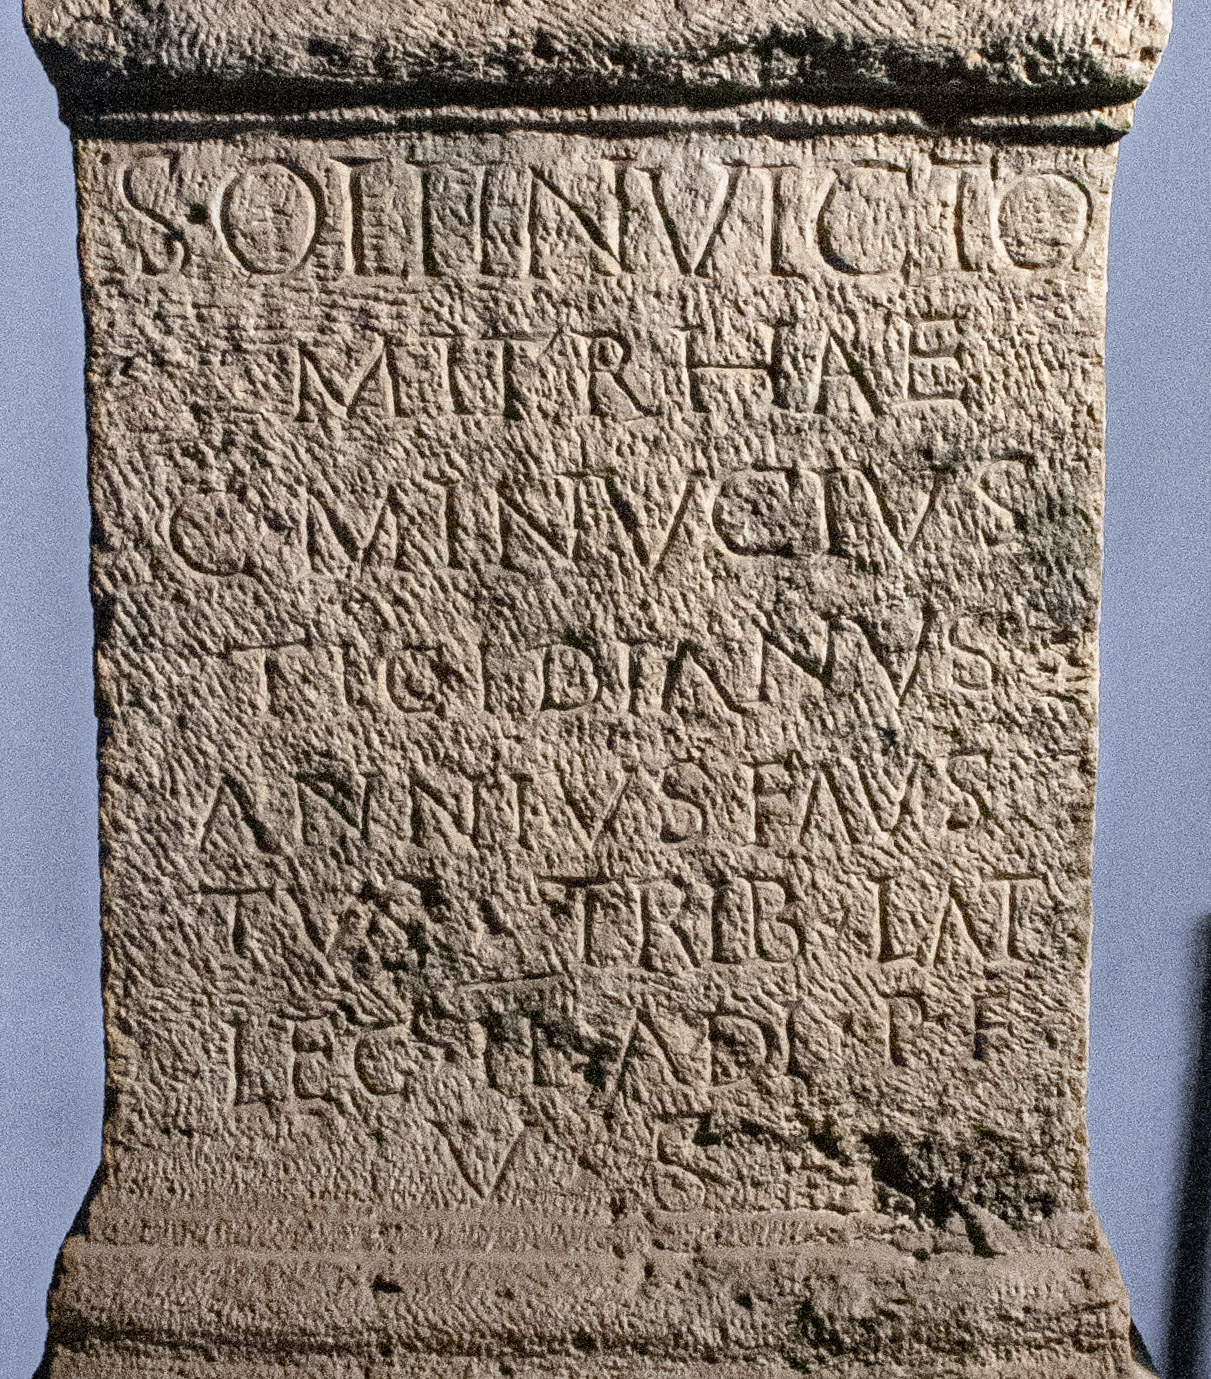 SOLI INVICTO
MITRHAE
C MINVCIVS
TIGIDIANVS
ANNIVS FAVS
TVS TRIB LAT
LEG II AD P F
V S